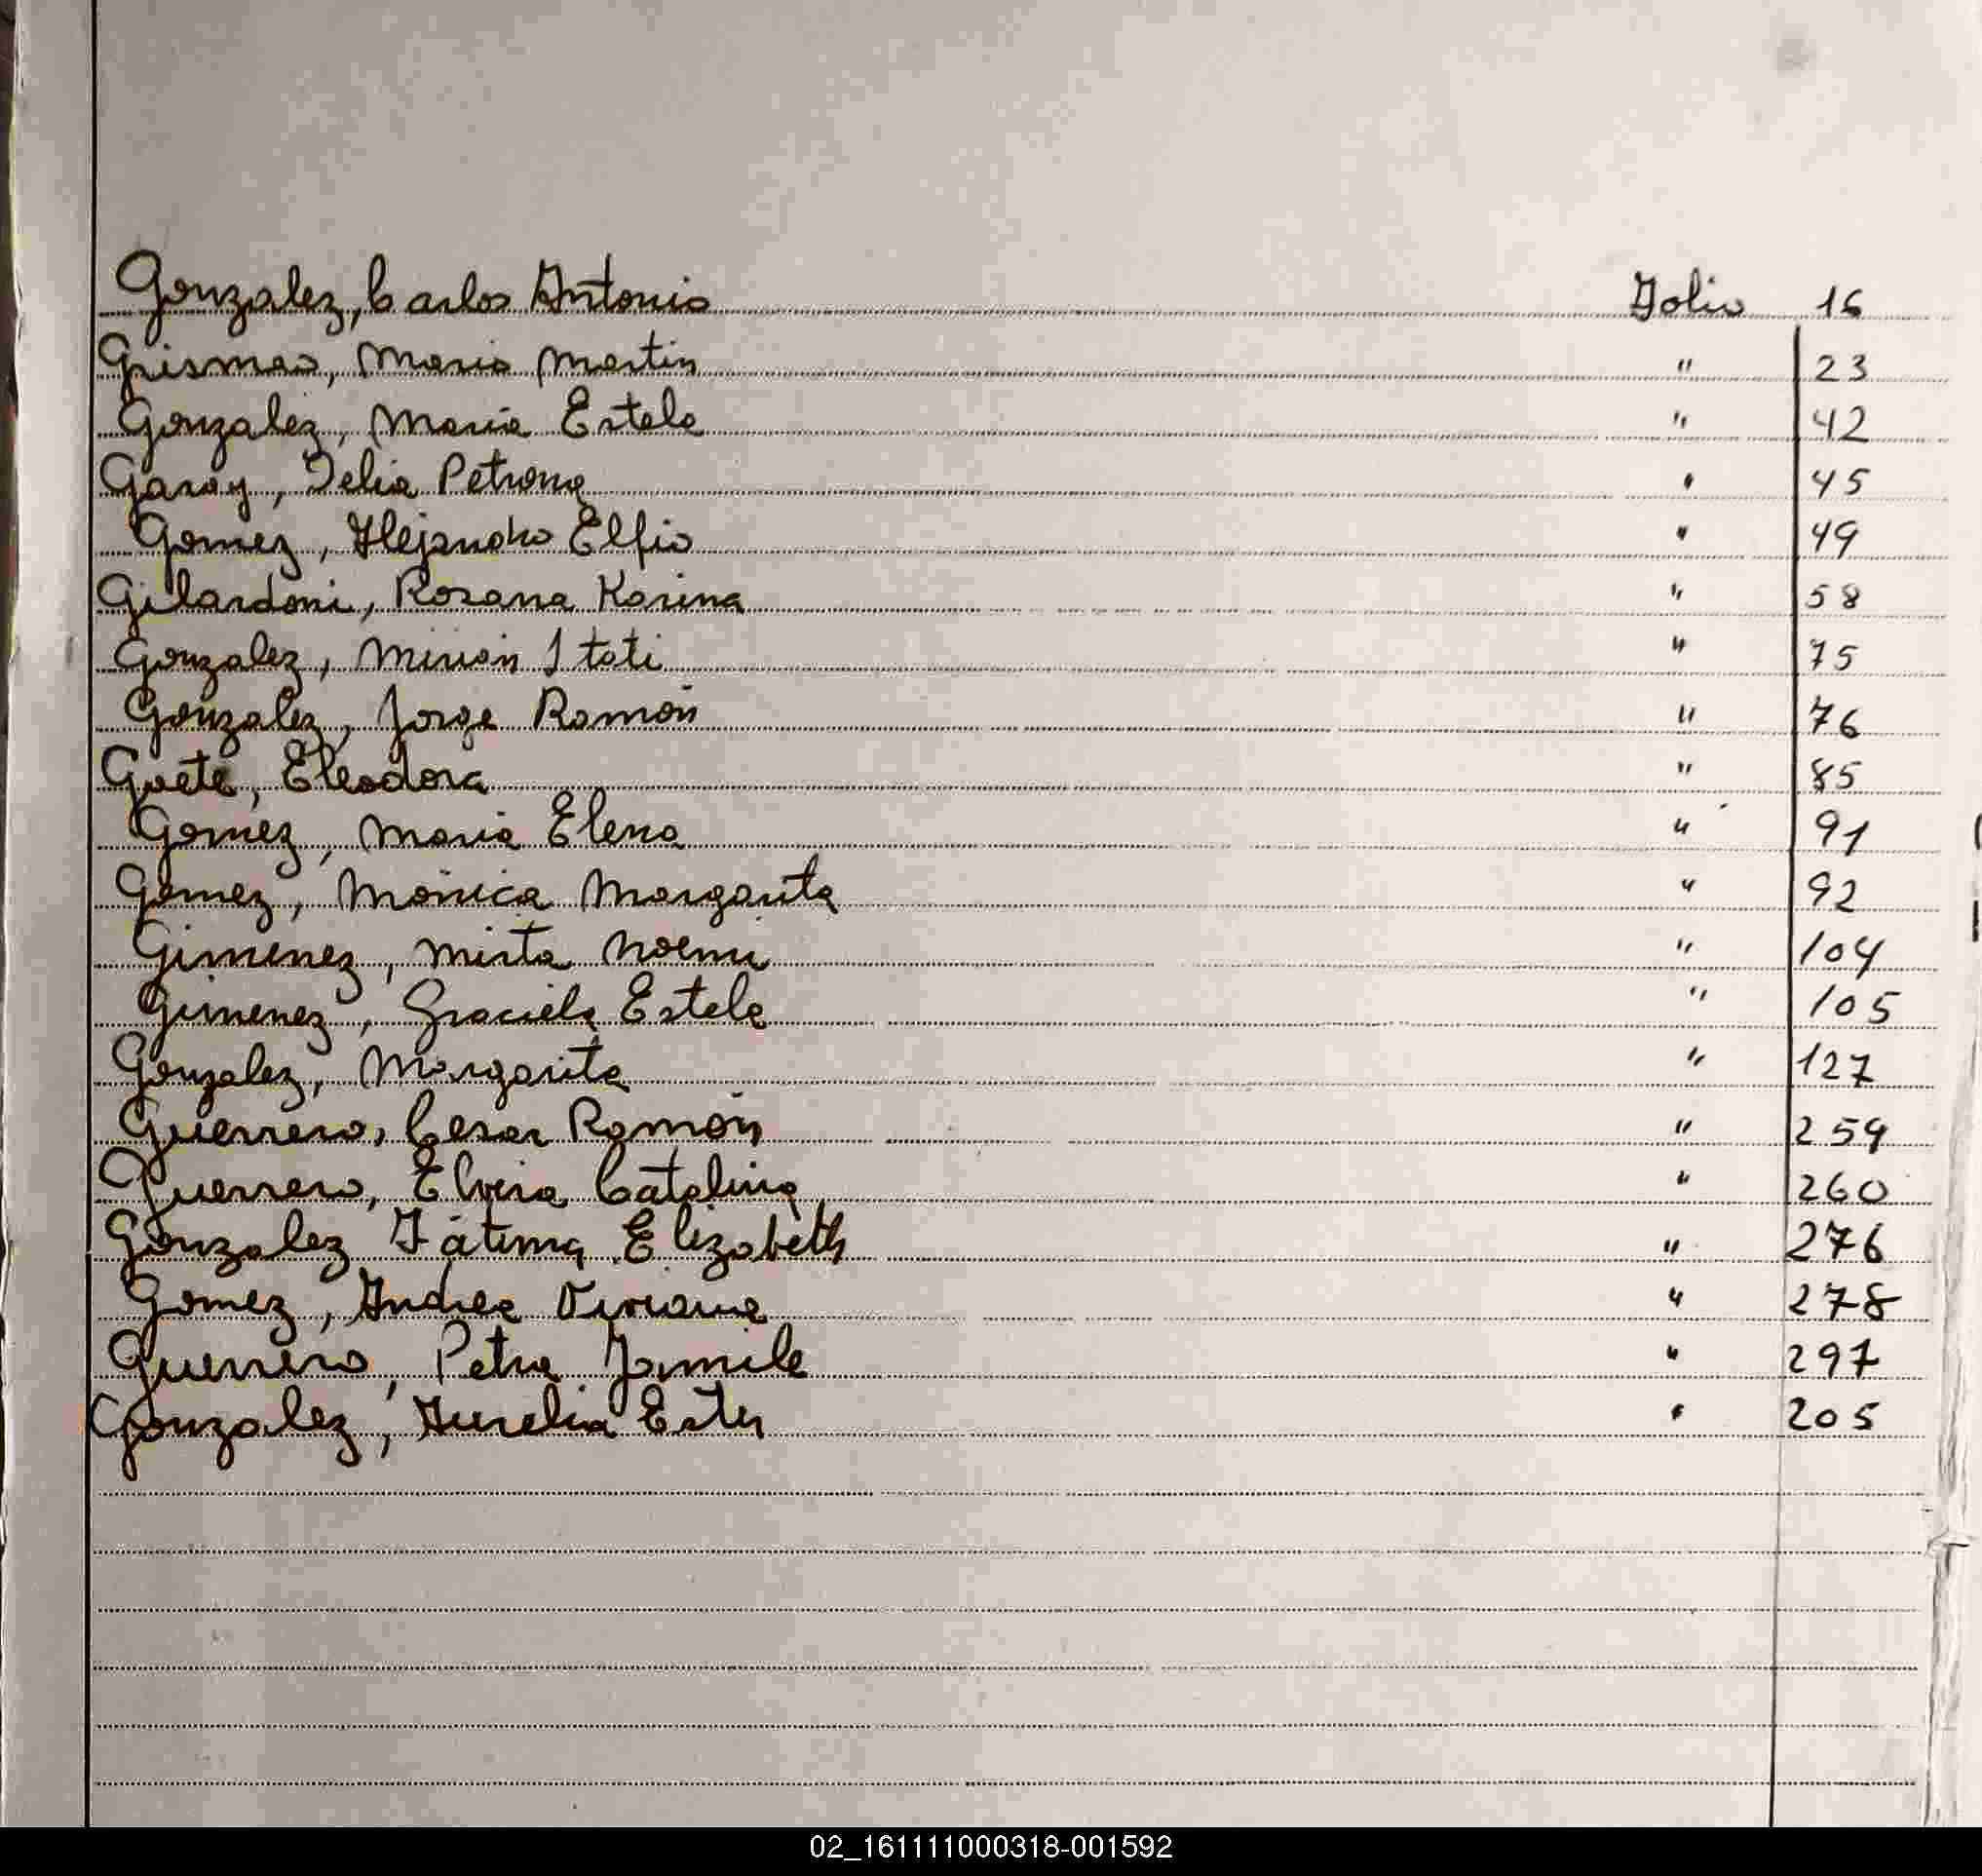 Gonzalez, Carlos Antonio Folio 16
Grismao, Mario Martin " 23
Gonzalez, Maria Estela " 42
Garay, Delia Petrona " 45
Gomez, Alejandro Elfio " 49
Gilardoni, Rosana Karina " 58
Gonzalez, Mirian Itati " 75
Gonzalez, Jorge Ramón " 76
Goete, Eleodora " 85
Gomez, Maria Elena " 91
Gomez, Mónica Margarita " 92
Gimenez, Mirta Noemi " 104
Gimenez, Graciela Estela " 105
Gonzalez, Margarita " 127
Guerrero, Cesar Ramón " 259
Guerrero, Elvira Catalina " 260
Gonzalez Fátima Elizabeth " 276
Gomez, Andrea Viviana " 278
Guerrero, Petra Jamile " 297
Gonzalez, Aurelia Ester " 205
02_161111000318-001592